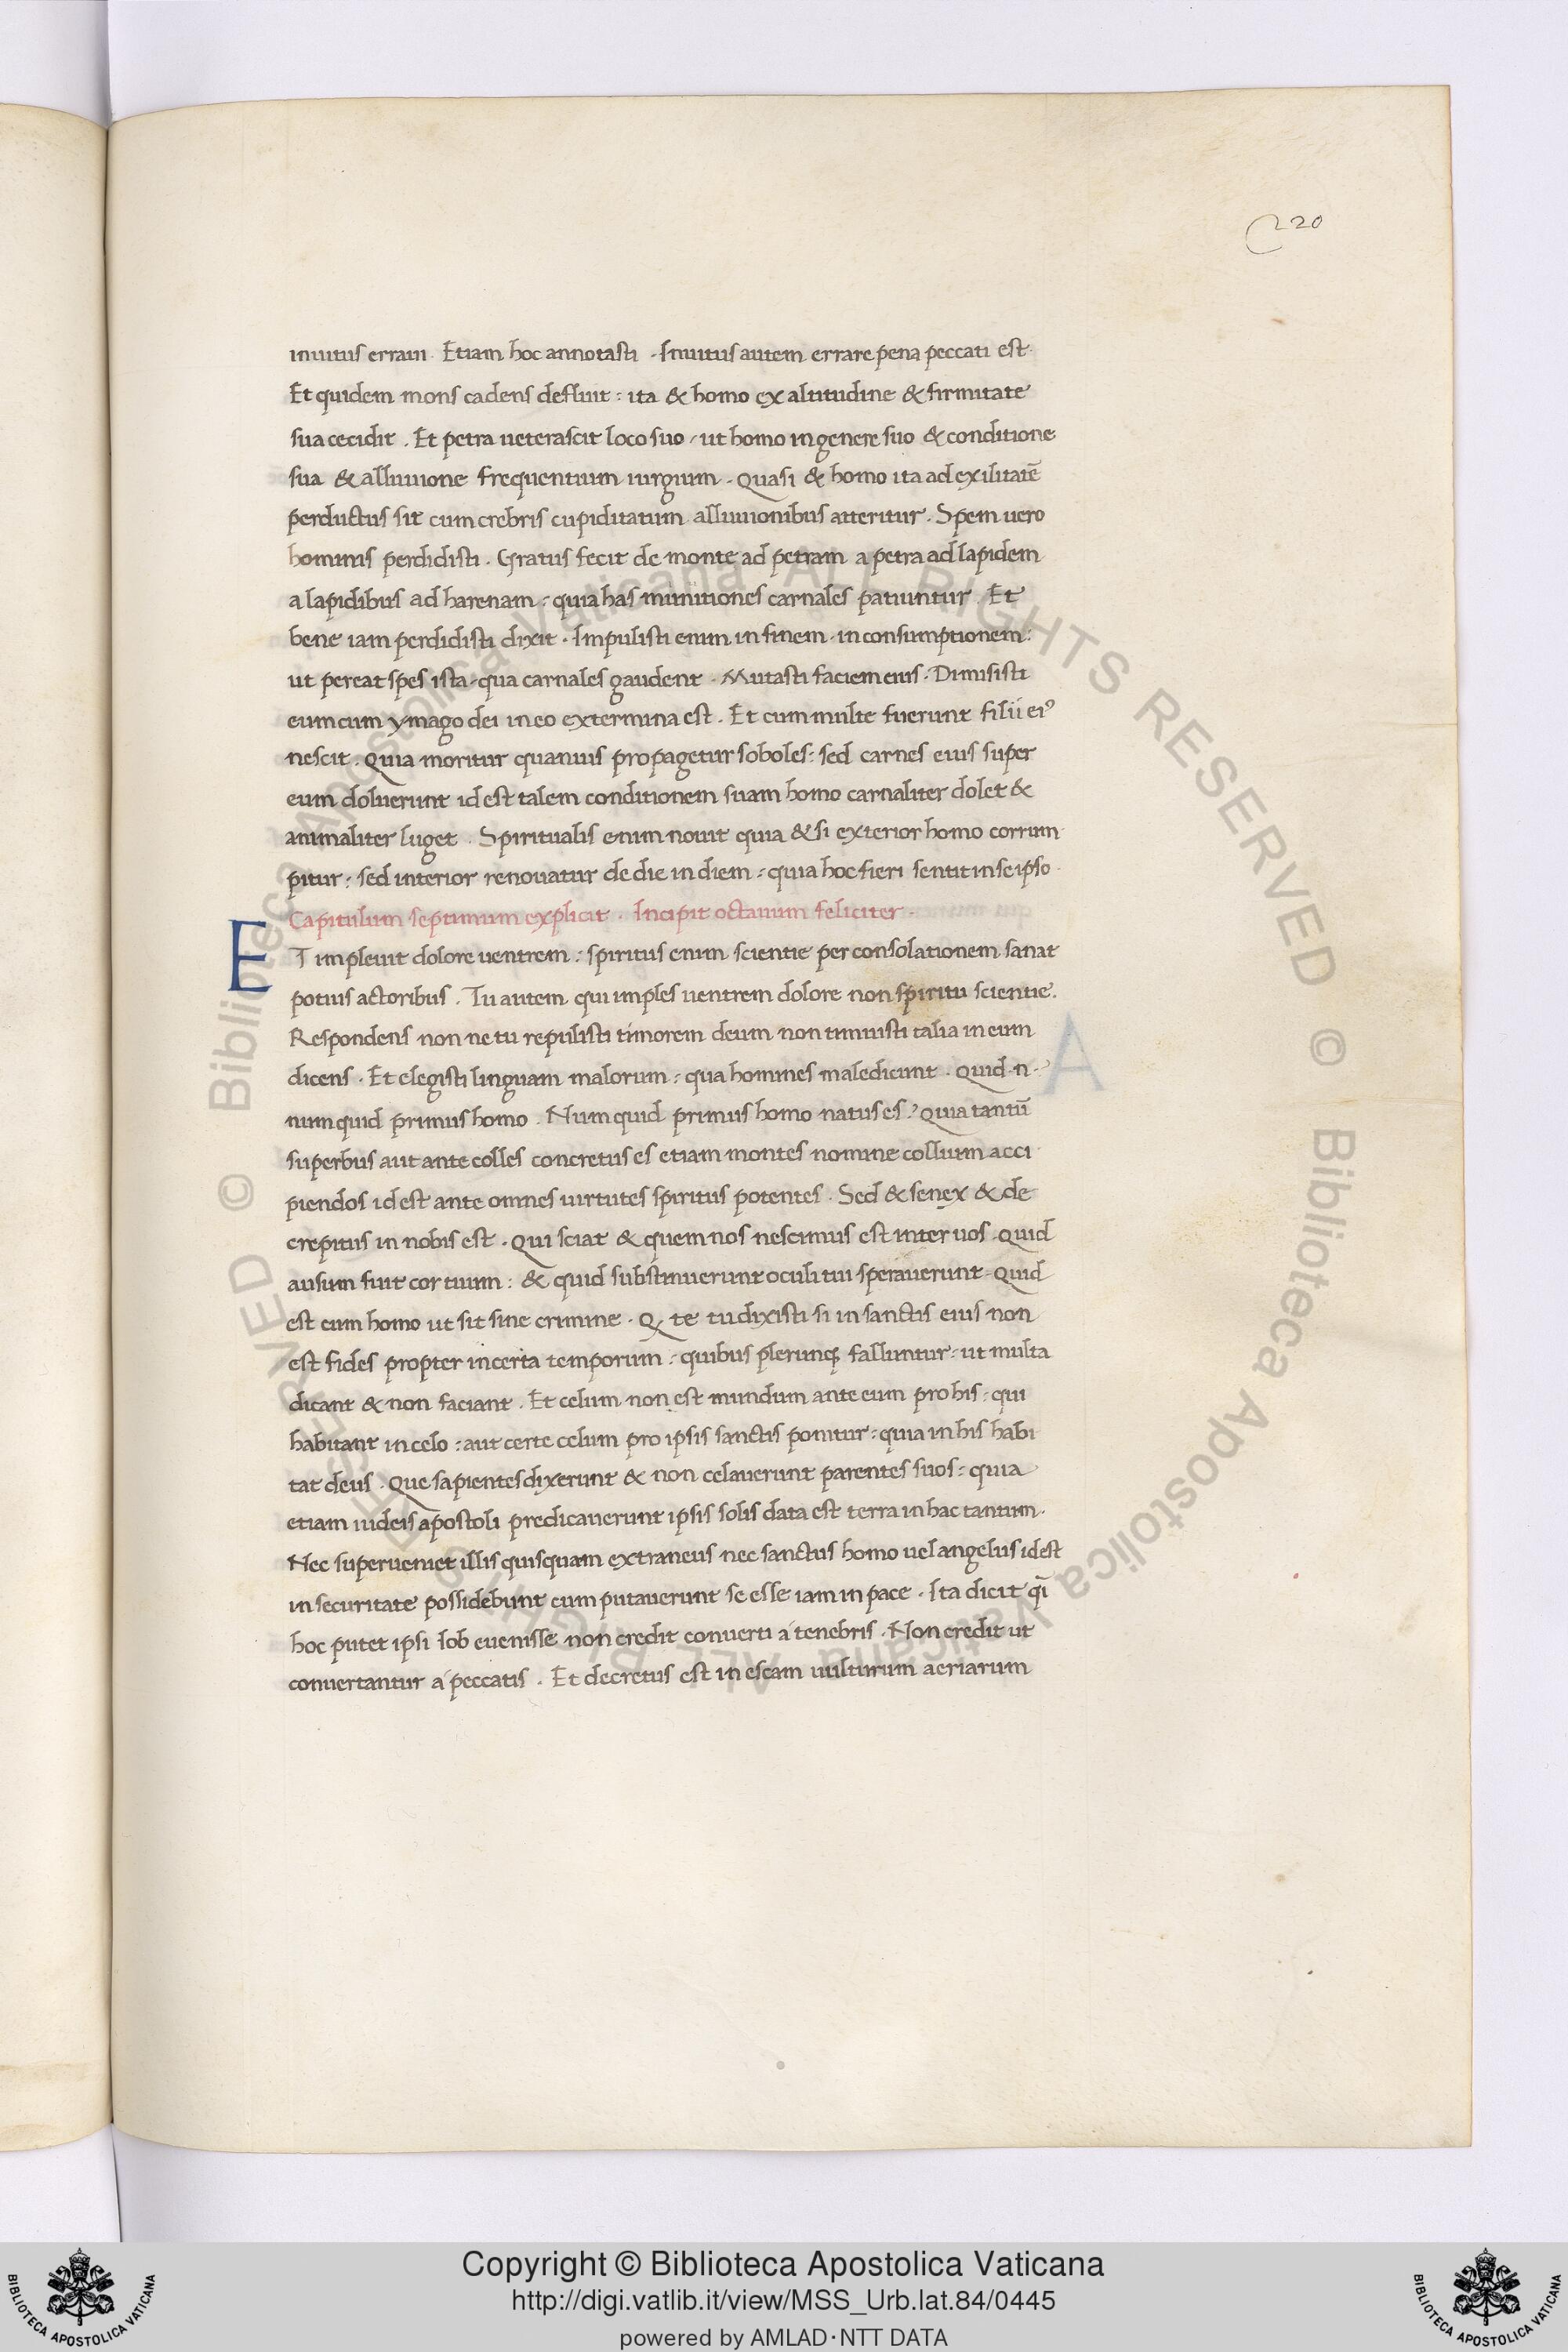 220
inuitus erraui. Etiam hoc annotasti. Inuitus autem errare pena peccati est.
Et quidem mons cadens defluit: ita & homo ex altitudine & firmitate
sua cecidit. Et petra ueterascit loco suo, ut homo in genere suo & conditione
sua & alluuione frequentium iurgium. Quasi & homo ita ad exilitatē
perductus sit cum crebris cupiditatum alluuionibus atteritur. Spem uero
hominis perdidisti. Gratus fecit de monte ad petram a petra ad lapidem
a lapidibus ad harenam: quia has munitiones carnales patiuntur. Et
bene iam perdidisti dixit. Impulisti enim in finem in consumptionem:
ut pereat spes ista, qua carnales gaudent. Mutasti faciem eius. Dimisisti
eum cum ymago dei in eo extermina est. Et cum multe fuerunt filii ei⁹
nescit. Quia moritur quamuis propagetur soboles: sed carnes eius super
eum doluerunt id est talem conditionem suam homo carnaliter dolet &
animaliter luget. Spiritualis enim nouit quia & si exterior homo corrum
pitur: sed interior renouatur de die in diem: quia hoc fieri sentit in se ipso.
Capitulum septimum explicit. Incipit octauum feliciter.
ET impleuit dolore uentrem: spiritus enim scientie per consolationem sanat
potius a doloribus. Tu autem qui imples uentrem dolore non spiritu scientie.
Respondens non ne tu repulisti timorem deum non timuisti talia in eum
dicens. Et elegisti linguam malorum: qua homines maledicunt. Quid .n.
numquid primus homo. Numquid primus homo natus es? Quia tantū
superbus aut ante colles concretus es etiam montes nomine collium acci
piendos id est ante omnes uirtutes spiritus potentes. Sed & senex & de
crepitus in nobis est. Qui sciat & quem nos nescimus est inter uos. Quid
ausum fuit cor tuum: & quid substinuerunt oculi tui sperauerunt. Quid
est eum homo ut sit sine crimine. Q te tu dixisti si in sanctis eius non
est fides propter incerta temporum: quibus plerunq; falluntur: ut multa
dicant & non faciant. Et celum non est mundum ante eum pro his: qui
habitant in celo: aut certe celum pro ipsis sanctis ponitur: quia in his habi
tat deus. Que sapientes dixerunt & non celauerunt parentes suos: quia
etiam iudeis apostoli predicauerunt ipsis solis data est terra in hac tantum.
Nec superueniet illis quisquam extraneus nec sanctus homo uel angelus id est
in securitate possidebunt cum putauerunt se esse iam in pace. Ita dicit qi
hoc putet ipsi Iob euenisse non credit conuerti a tenebris. Non credit ut
conuertantur a peccatis. Et decretus est in escam uulturum aeriarum
BIBLIOTECA APOSTOLICA VATICANA
Copyright © Biblioteca Apostolica Vaticana
http://digi.vatlib.it/view/MSS_Urb.lat.84/0445
powered by AMLAD·NTT DATA
BIBLIOTECA APOSTOLICA VATICANA
© Biblioteca Apostolica Vaticana ALL RIGHTS RESERVED
© Biblioteca Apostolica Vaticana ALL RIGHTS RESERVED